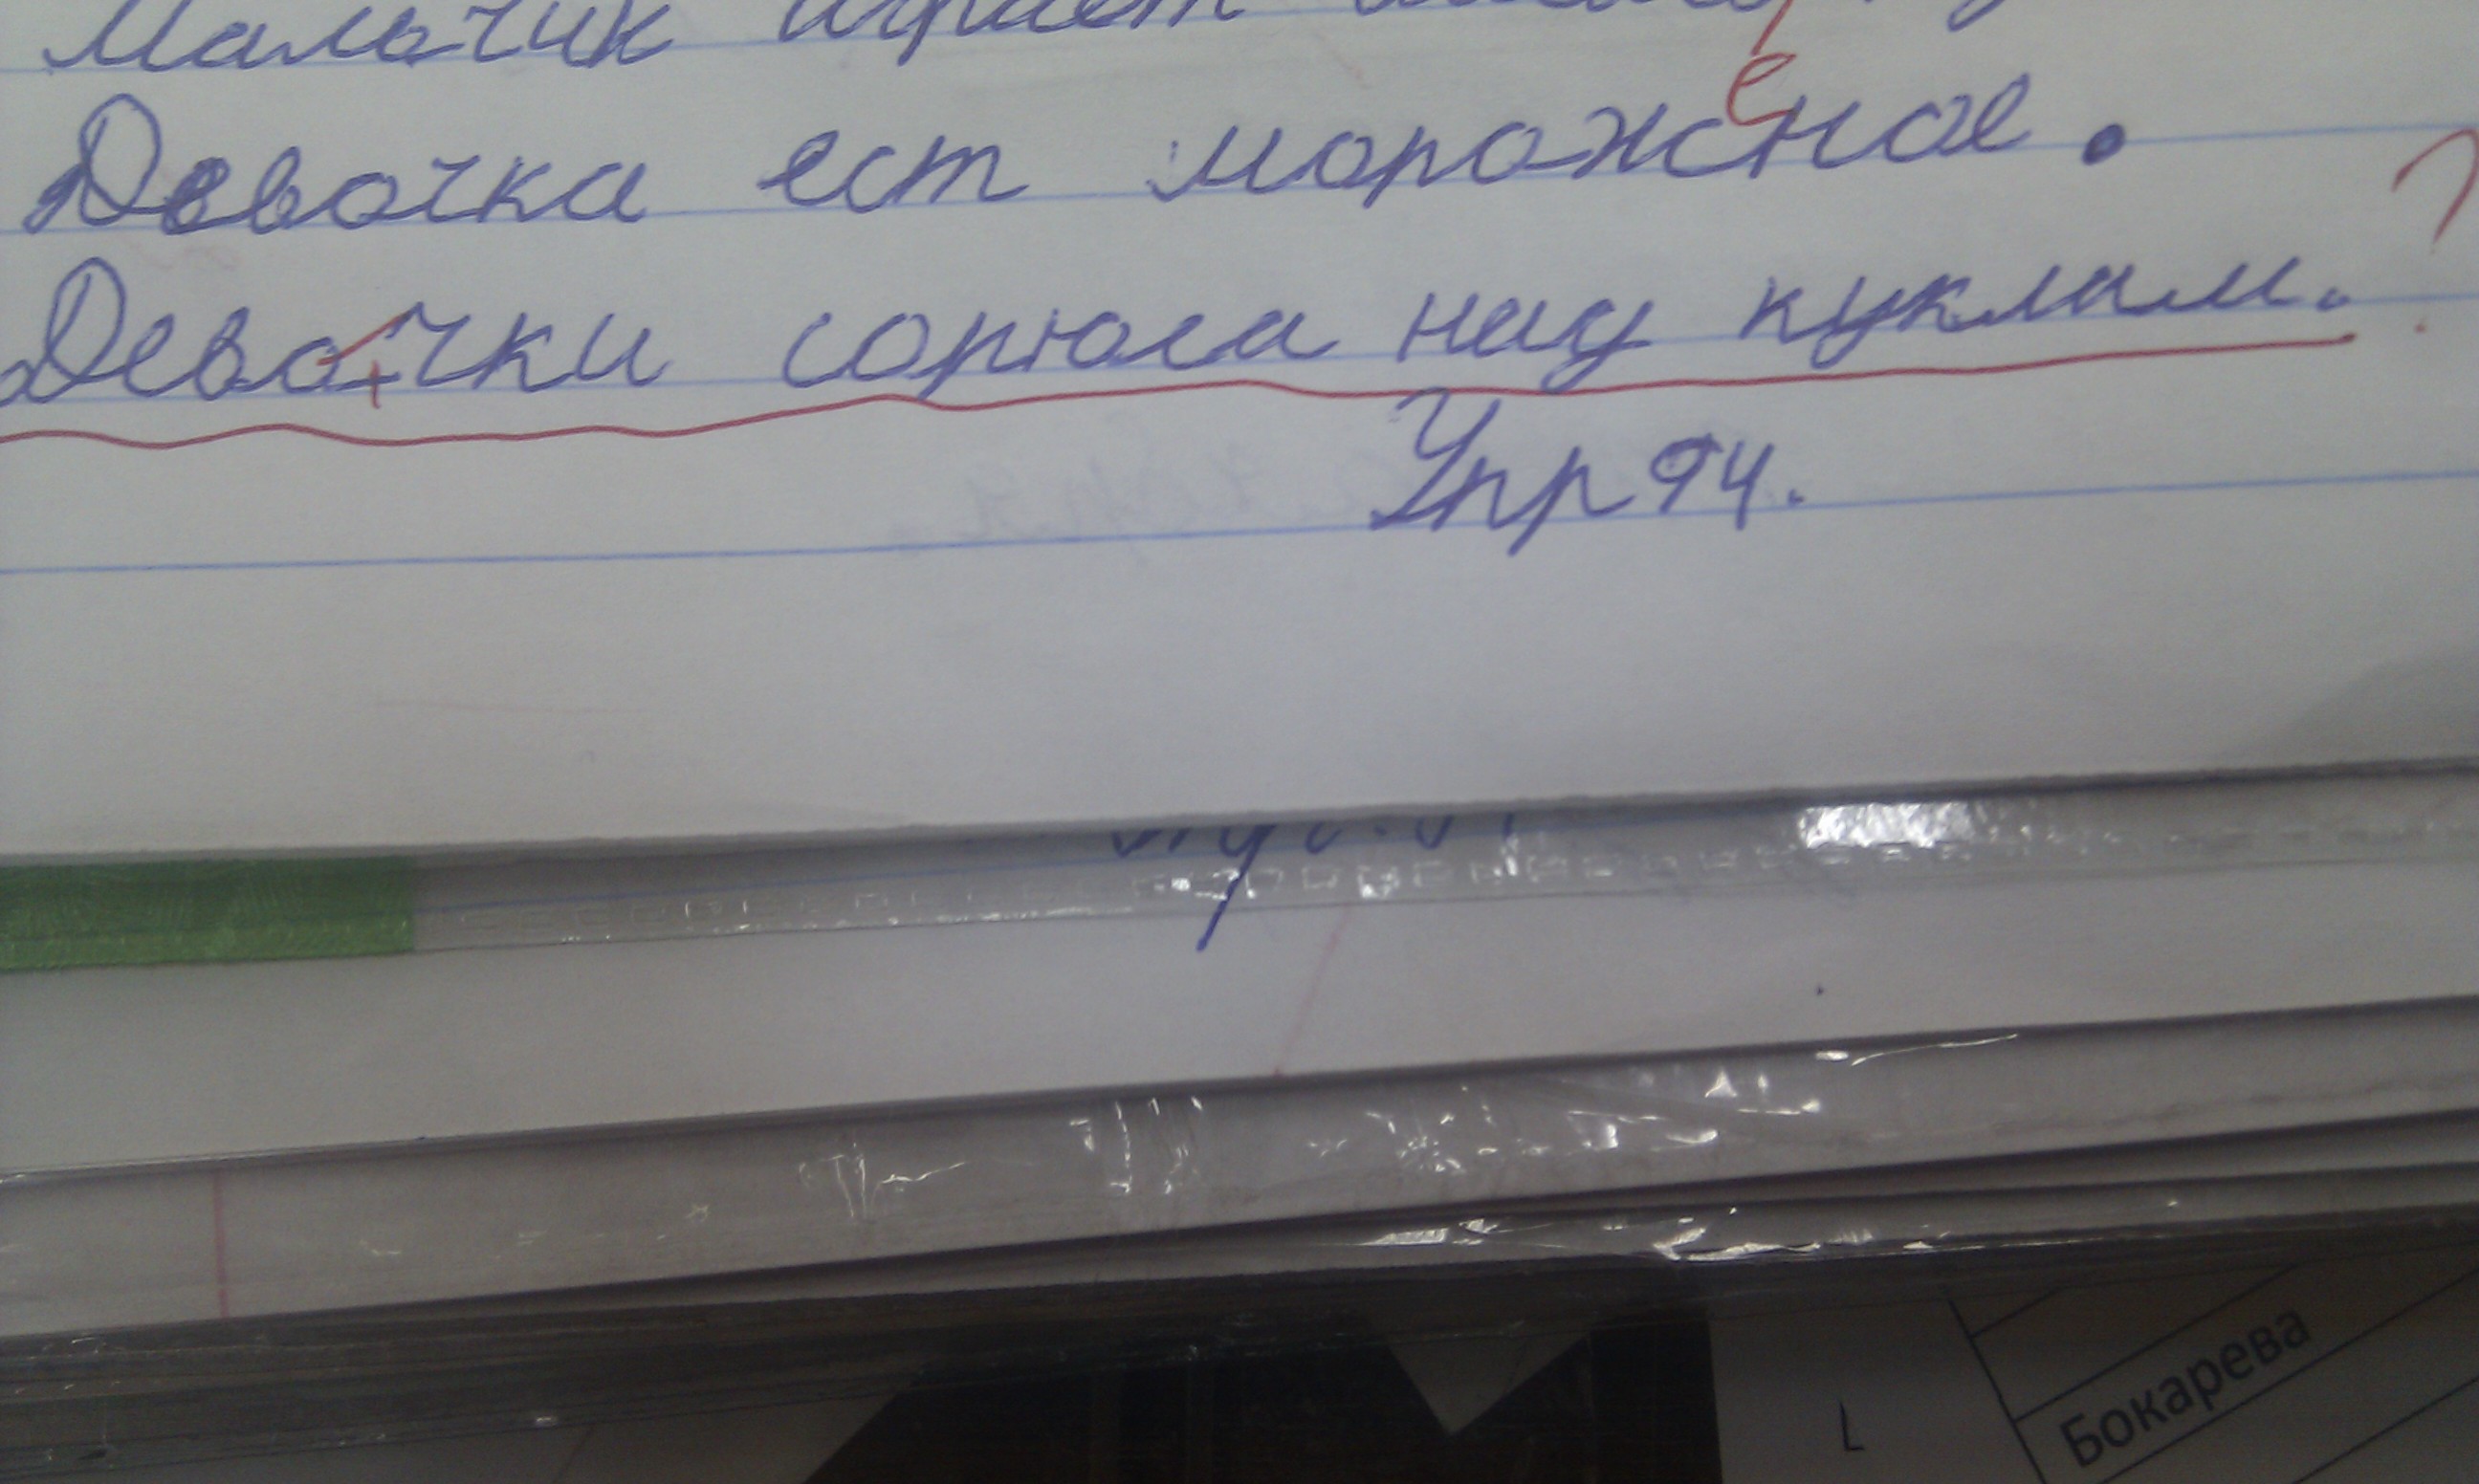 Мальчик играет
Девочка ест мороженое.
Девочки сорюса нау куклам.
?
Упр 94.
Бокарева